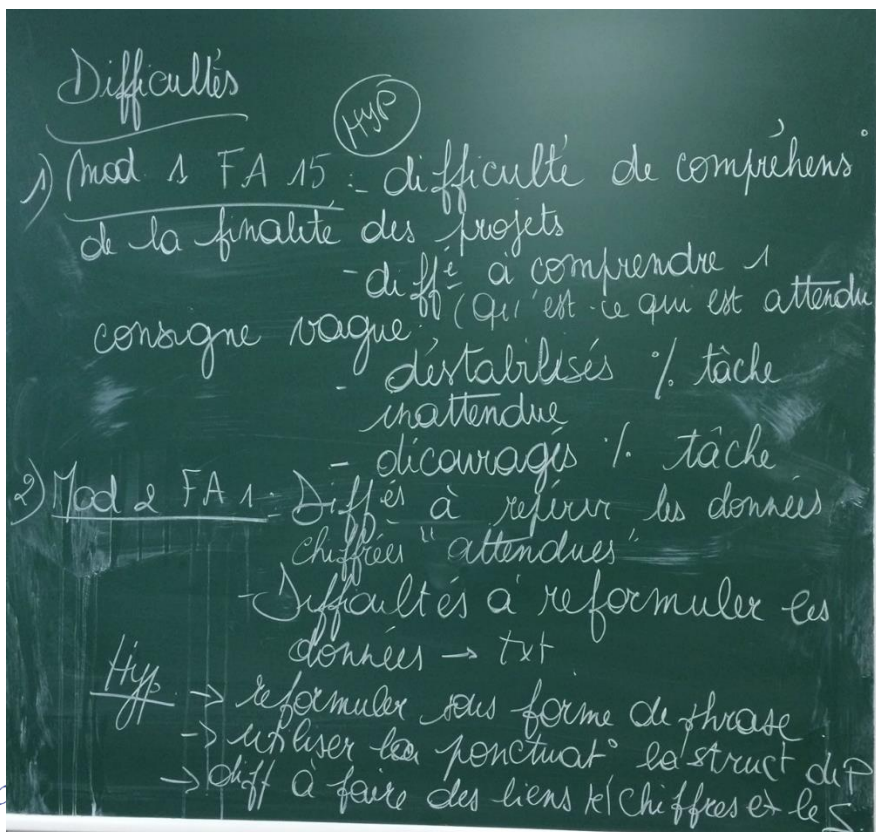 Difficultés
HYP
1) Mod 1 FA 15 : - difficulté de compréhens°
de la finalité des projets
- diffé à comprendre 1
consigne vague (Qu'est-ce qui est attendu
- déstabilisés %. tâche
inattendue
- découragés %. tâche
2) Mod 2 FA 1 : - Diffés à repérer les données
chiffrées "attendues"
- Difficultés à reformuler les
données → txt
Hyp. → reformuler sous forme de phrase
→ utiliser la ponctuat° la struct de P
→ diff à faire des liens chiffres et le